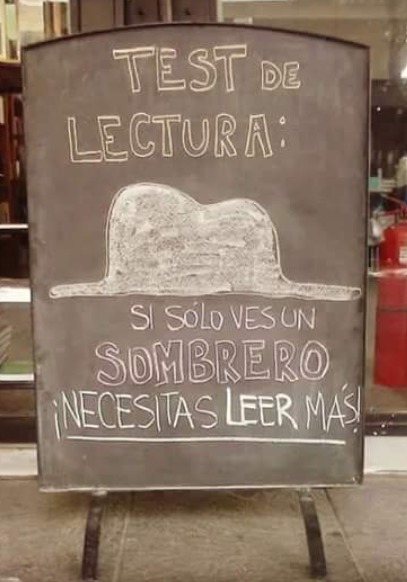 TEST DE
LECTURA:
SI SÓLO VES UN
SOMBRERO
¡NECESITAS LEER MÁS!